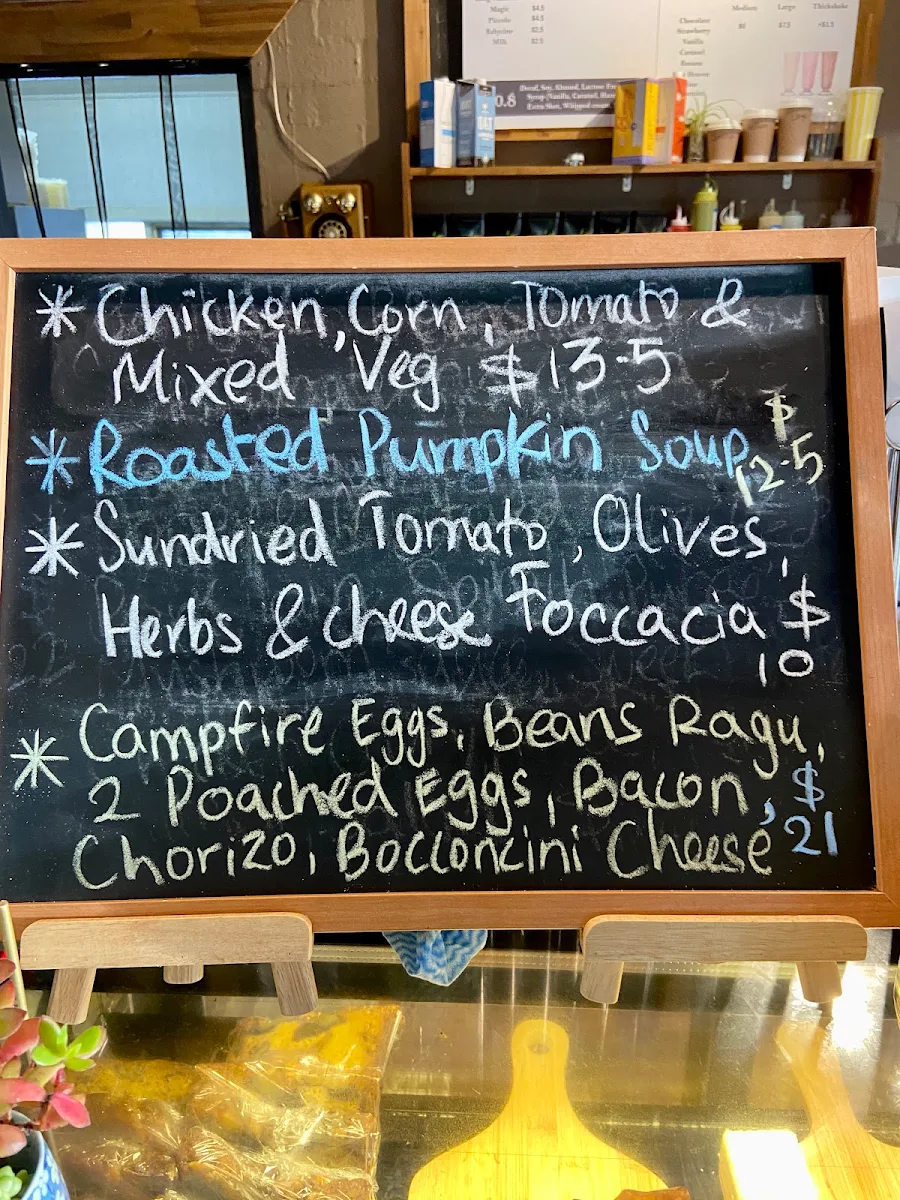 Magic $4.5
Piccolo $4.5
Babycino $2.5
Milk $2.5
Medium Large Thickshake
Chocolate $6 $7.5 +$1.5
Strawberry
Vanilla
Caramel
Banana
0.8
Decaf, Soy, Almond, Lactose
Syrup-Vanilla, Caramel,
Extra Shot, Whipped cream
OAT
* Chicken, Corn, Tomato &
Mixed Veg $13.5
* Roasted Pumpkin Soup $12.5
* Sundried Tomato, Olives,
Herbs & cheese Foccacia $10
* Campfire Eggs, Beans Ragu,
2 Poached Eggs, Bacon, $21
Chorizo, Bocconcini Cheese